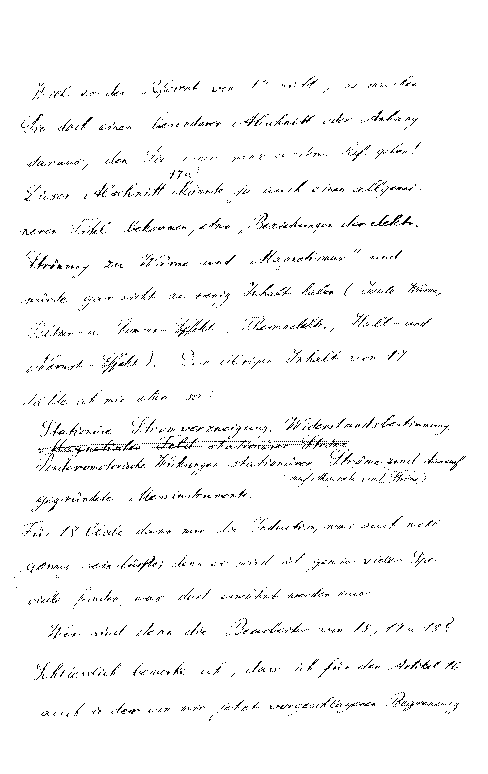 Will so der Referent von 17 nicht, so machen
Sie doch einen besonderen Abschnitt oder Anhang
daraus, den Sie
17a
Dieser Abschnitt könnte ja auch einen allgemei-
neren Titel bekommen, etwa „Beziehungen der elektr.
Strömung zu Wärme und Magnetismus" und
würde gar nicht zu wenig Inhalt haben (Joule Wärme,
Peltier- u. Effekt, Thermoelektr., Hall- und
Nernst-Effekt). Den übrigen Inhalt von 17
dächte ich mir etwa so:
Stationäre Stromverzweigung. Widerstandsbestimmung.
Magnetisches Feld stationärer Ströme
Ponderomotorische Wirkungen stationärer Ströme und darauf
(auf Magnete und Ströme)
gegründete Messinstrumente.
Für 18 bliebe dann nur die Induction, was auch voll
genug sein dürfte; denn es wird sich gewiss vieles Spe-
cielle finden, was dort erwähnt werden muss.
Wer sind denn die Bearbeiter von 15, 17 u 18?
Schliesslich bemerke ich, dass ich für den Artikel 16
auch in dem von mir jetzt vorgeschlagenen Begrenzung